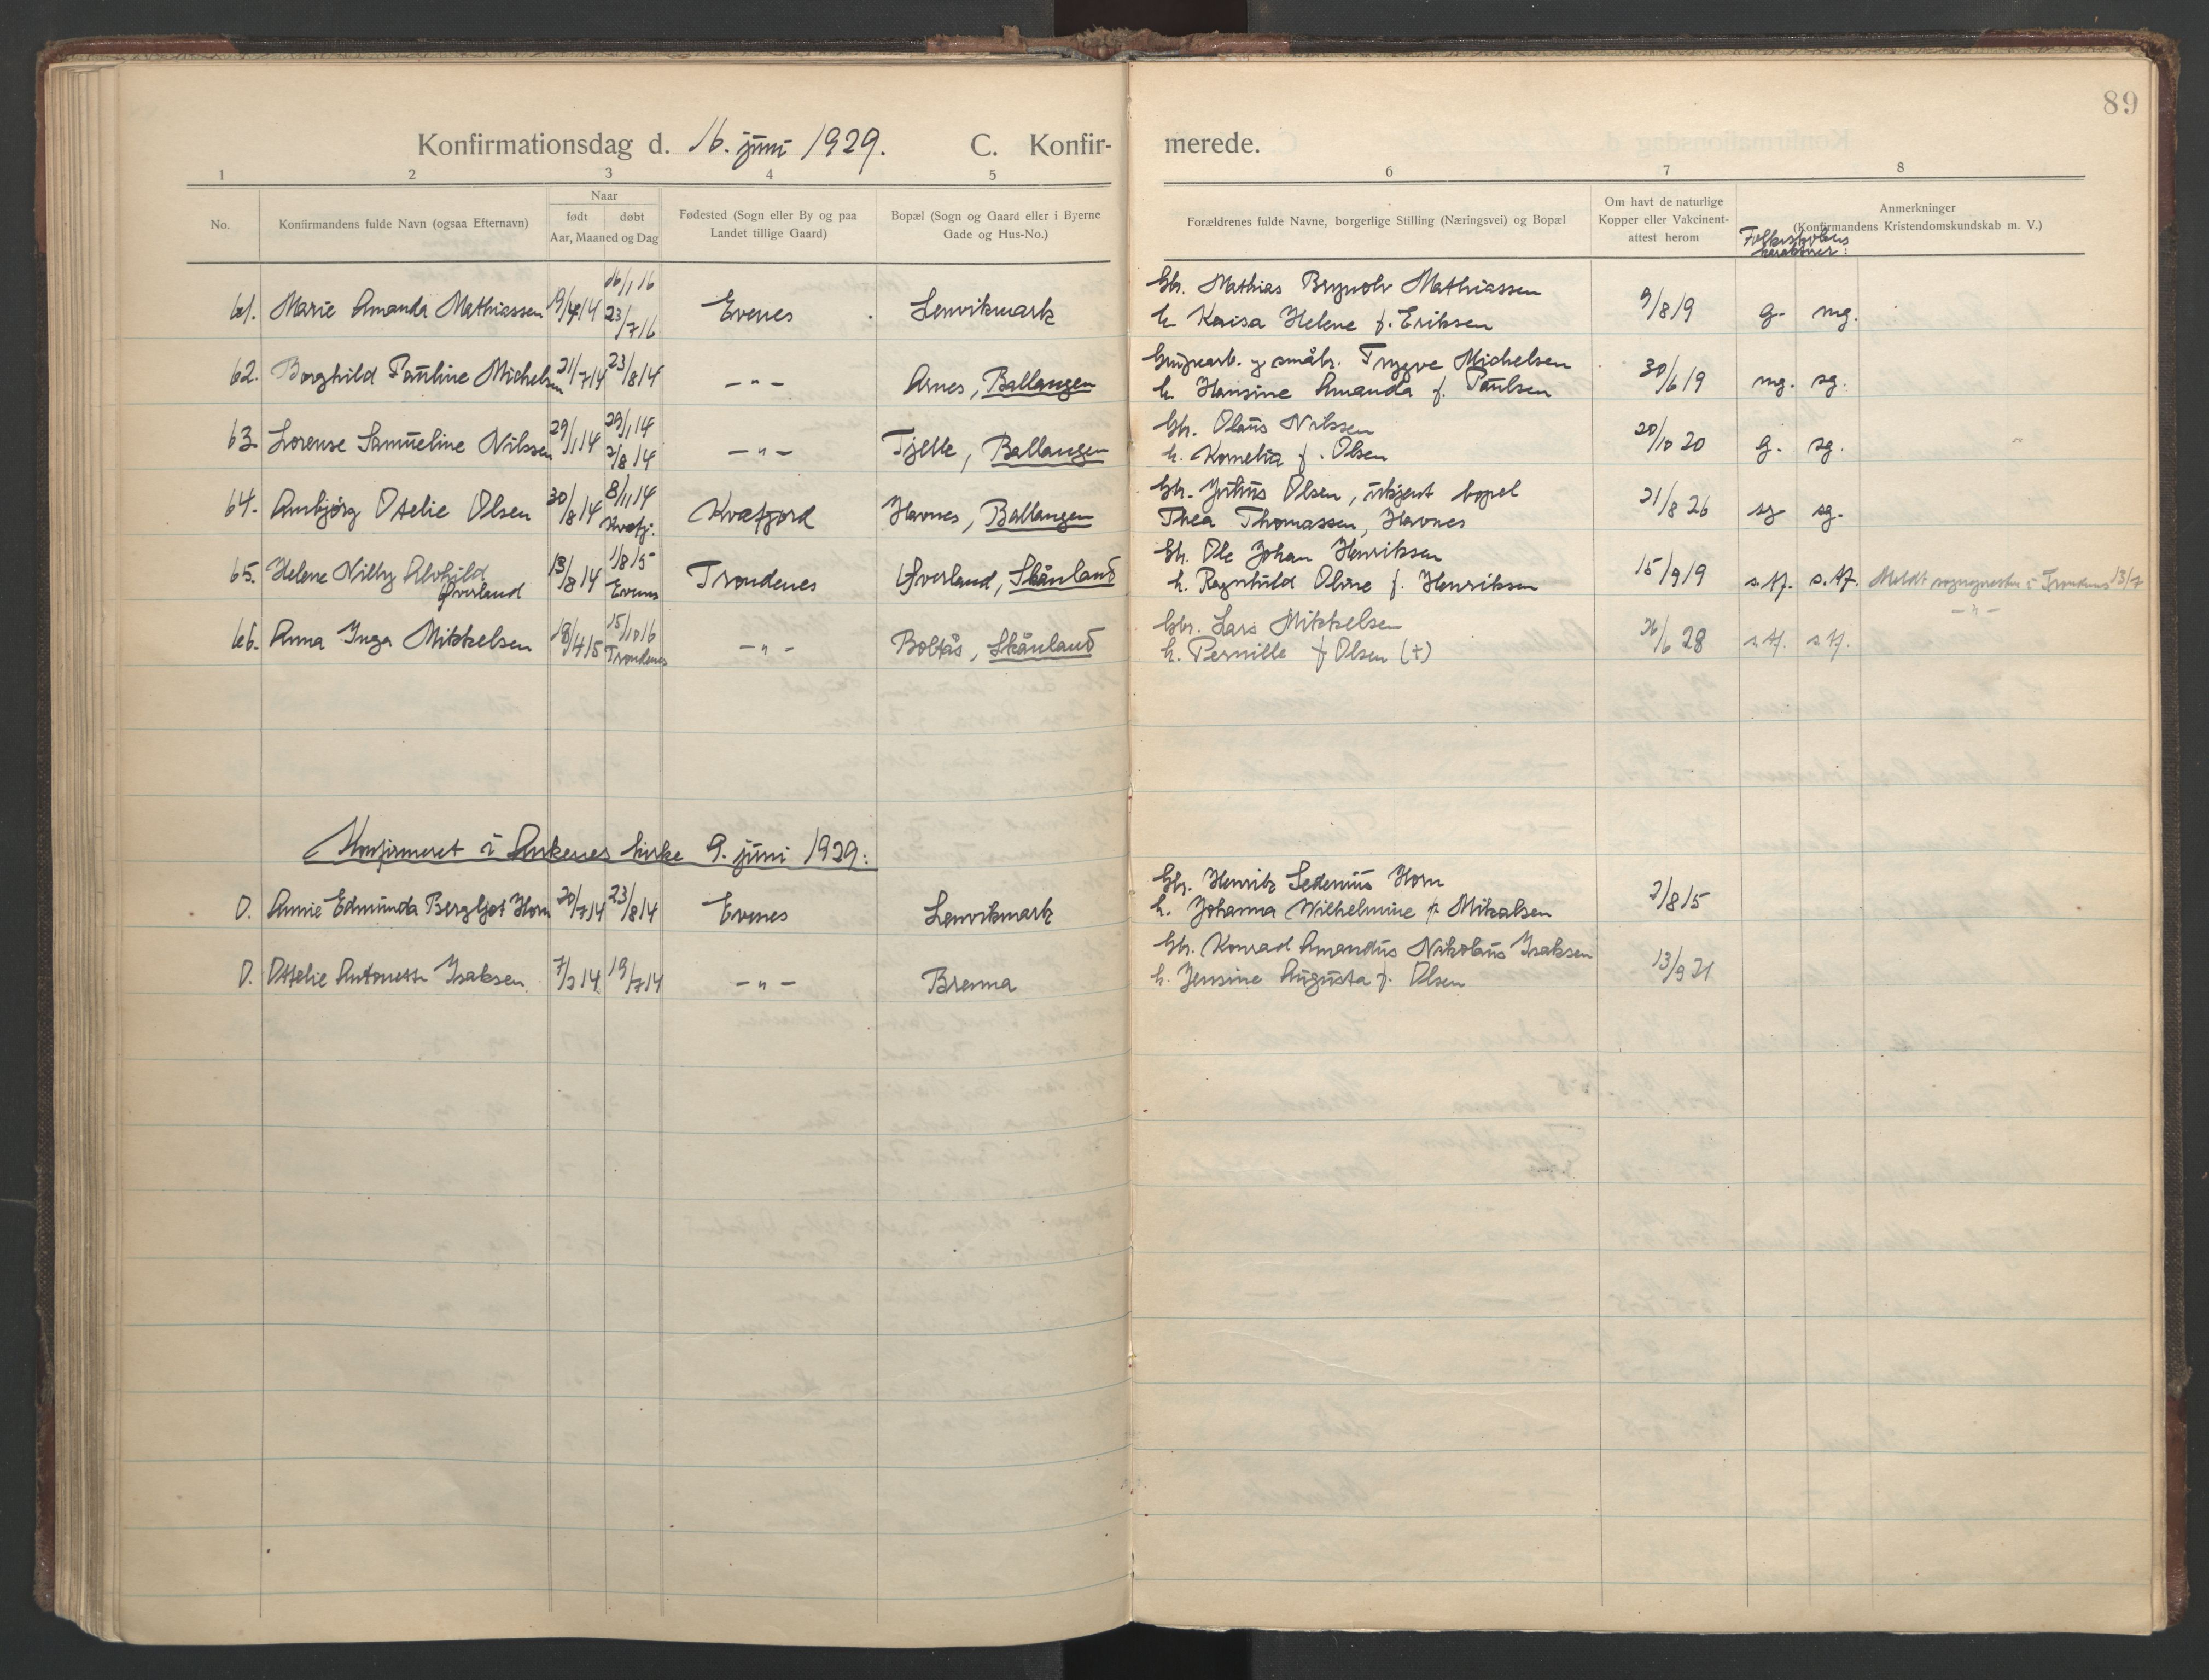 89
Konfirmationsdag d. 16. juni 1929. C. Konfir- merede.
1 2 3 4 5 6 7 8
No.
Konfirmandens fulde Navn (ogsaa Efternavn)
Naar
født døbt
Aar, Maaned og Dag
Fødested (Sogn eller By og paa
Landet tillige Gaard)
Bopæl (Sogn og Gaard eller i Byerne
Gade og Hus-No.)
Forældrenes fulde Navne, borgerlige Stilling (Næringsvei) og Bopæl
Om havt de naturlige
Kopper eller Vakcinent-
attest herom
Anmerkninger
(Konfirmandens Kristendomskundskab m. V.)
Folkeskolens
karakterer:
61. Marie Amanda Mathiassen 19/4 14 16/1 16 23/7 16 Evenes Lenvikmark
Gbr. Mathias Brynolv Mathiassen
h. Kaisa Helene f. Eriksen 9/8 19 g. mg.
62. Borghild Pauline Michelsen 21/7 14 23/8 14 -"- Arnes, Ballangen
Gruvearb. og småbr. Trygve Michelsen
h. Hansine Amanda f. Paulsen 30/6 19 mg. sg.
63. Lorense Samueline Nilssen 29/1 14 29/1 14 2/8 14 -"- Tjelle, Ballangen
Gbr. Olaus Nilssen
h. Kornelia f. Olsen 20/10 20 g. sg.
64. Annbjørg Otelie Olsen 30/8 14 8/11 14 Kvæfj. Kvæfjord Havnes, Ballangen
Gbr. Julius Olsen, ukjent bopel
Thea Thomassen, Havnes 21/8 26 sg sg.
65. Helene Nilly Alvhild
Øverland 13/8 14 1/8 15 Evenes Trondenes Øverland, Skånland
Gbr. Ole Johan Henriksen
h. Ragnhild Oline f. Henriksen 15/9 19 s.tf. s.tf. Meldt sognepresten i Trondenes 13/7
66. Anna Inga Mikkelsen 18/4 15 15/10 16 Trondenes -"- Boltås, Skånland
Gbr. Lars Mikkelsen
h. Pernille f Olsen (+) 26/6 28 s.tf. s.tf. -"-
Konfirmeret i Ankenes kirke 9. juni 1929:
0. Annie Edmunda Bergljot Horn 20/7 14 23/8 14 Evenes Lenvikmark
Gbr. Henrik Sedenius Horn
h. Johanna Wilhelmine f. Mikalsen 2/8 15
0. Otelie Antonette Isaksen 7/3 14 19/7 14 -"- Brenna
Gbr. Konrad Amandus Nikolaus Isaksen
h. Jensine Augusta f. Olsen 13/9 21